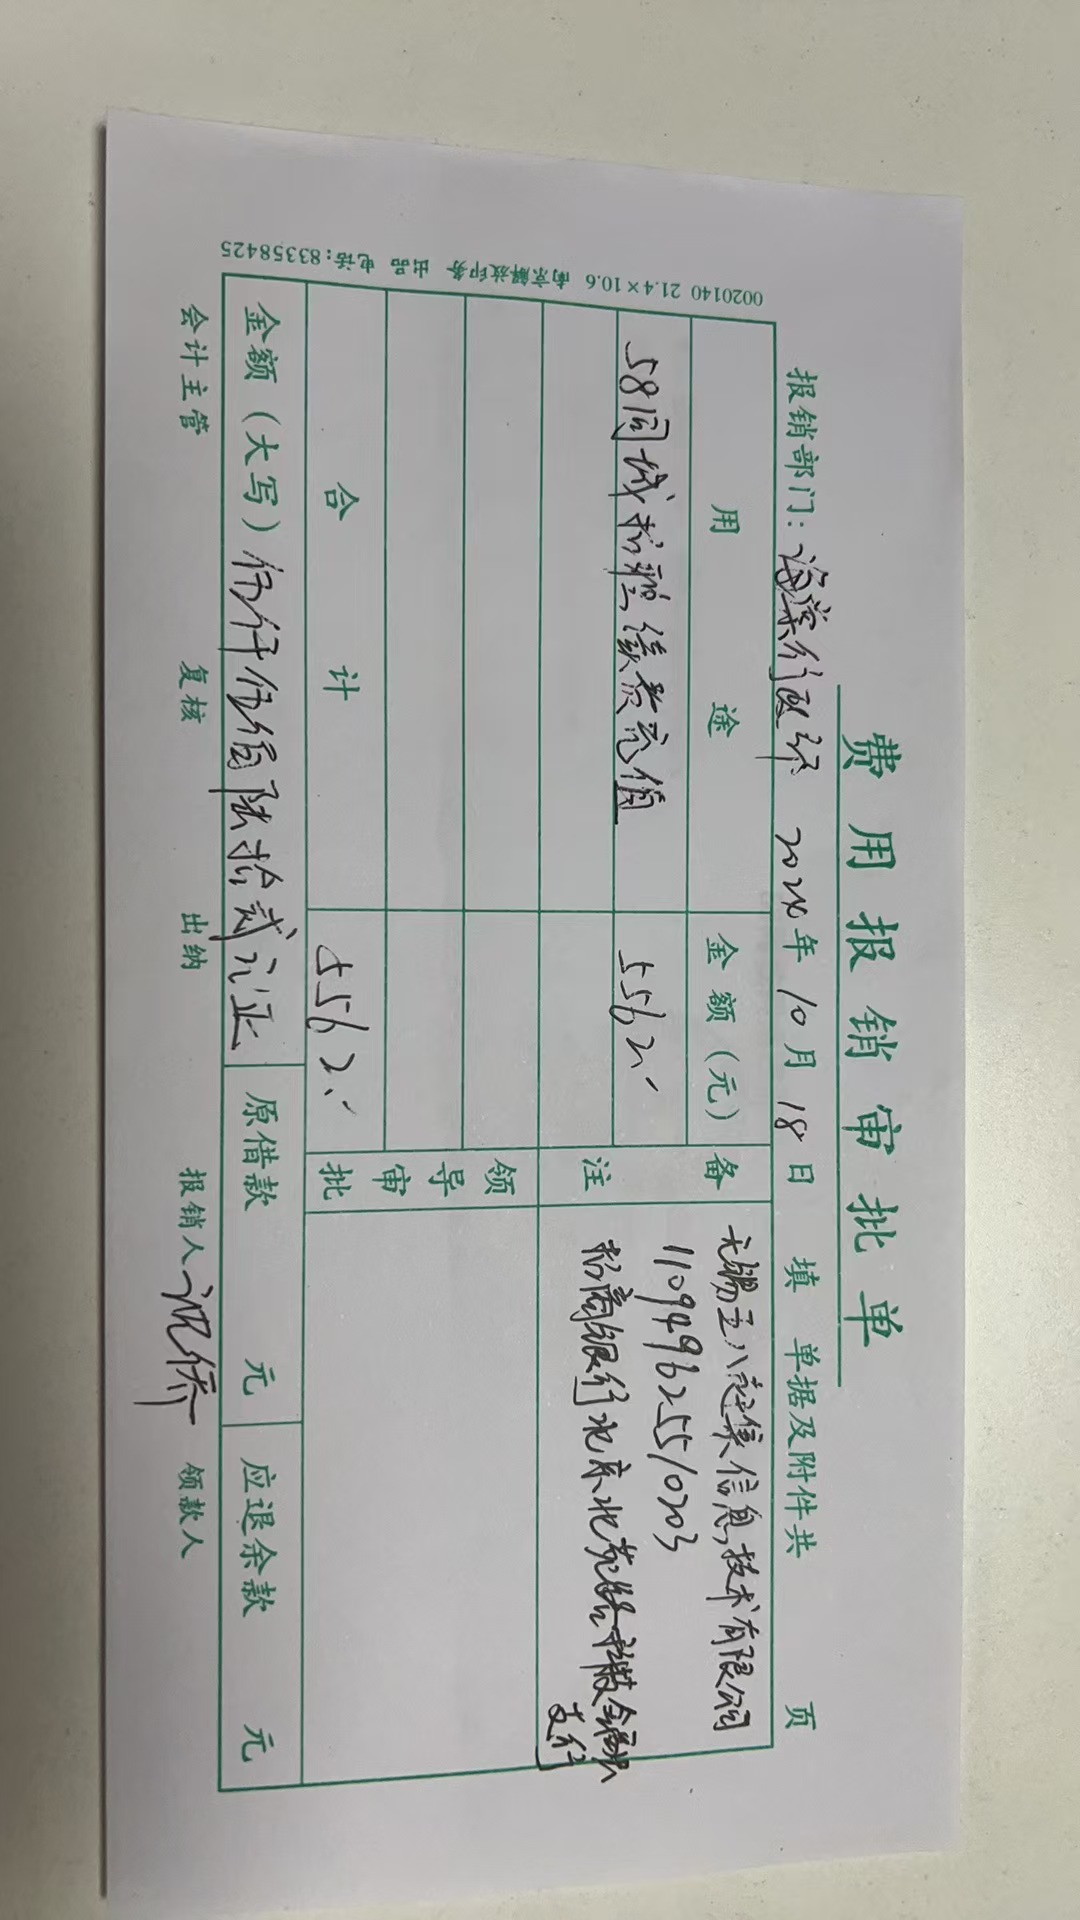 费用报销审批单
报销部门：海棠行政部 2024年10月18日 填 单据及附件共 页
用途 金额（元） 备注
58同城招聘续费充值 5562.-
无锡五八赶集信息技术有限公司
110949625510203
招商银行北京北苑路科技金融
支行
合计 5562.-
领导审批
金额（大写）伍仟伍佰陆拾贰元正 原借款 元 应退余款 元
会计主管 复核 出纳 报销人 领款人
0020140 21.4×10.6 南京解放印务 出品 电话:83358425